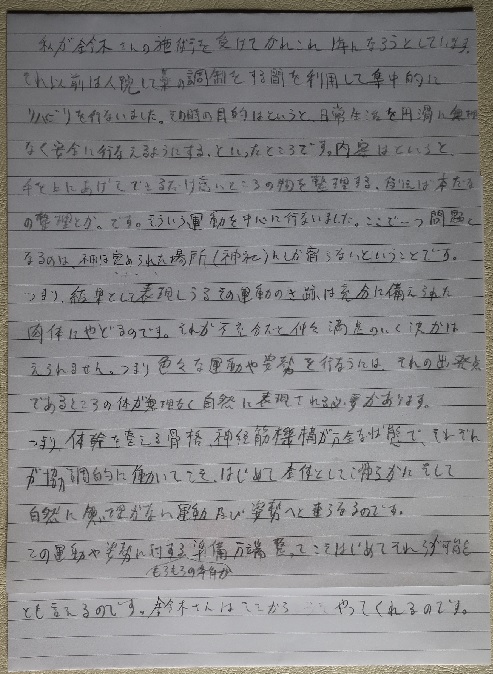 私が鈴木さんの施術を受けてかれこれ1年になろうとしています。
それ以前は入院して薬の調整をする間を利用して集中的に
リハビリを行ないました。その時の目的はというと、日常生活を円滑に無理
なく安全に行なえるようにする、といったところです。内容はというと、
手を上にあげてできるだけ高いところの物を整理する、例えば本だな
の整理とか。です。そういう運動を中心に行ないました。ここで一つ問題と
なるのは、神は定められた場所(神社)にしか宿らないということです。
つまり、結果として表現しうるその運動のき跡は充分に備えられた
肉体にやどるのです。それが不充分だと仲々満足のいく決かは
えられません。つまり色々な運動や姿勢を行なうには、それの出発点
であるところの体が無理なく自然に表現される必要があります。
つまり体幹を整える骨格、神経筋機構が万全な状態で、それぞれ
が協調的に働いてこそ、はじめて全体として滑らかにそして
自然に無理がない運動及び姿勢へと連らなるのです。
この運動や姿勢に対する準備万端整ってこそはじめてそれらが可能
もろもろの準備が
とも言えるのです。鈴木さんはそこから やってくれるのです。